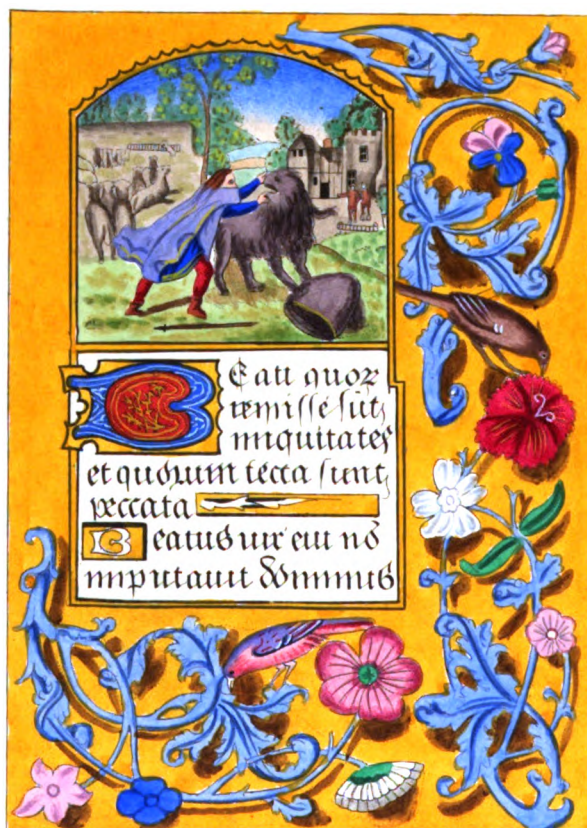 Beati quor
remisse sūt
iniquitates
et quorum tecta sunt
peccata
Beatus uir cui nō
imputauit dominus